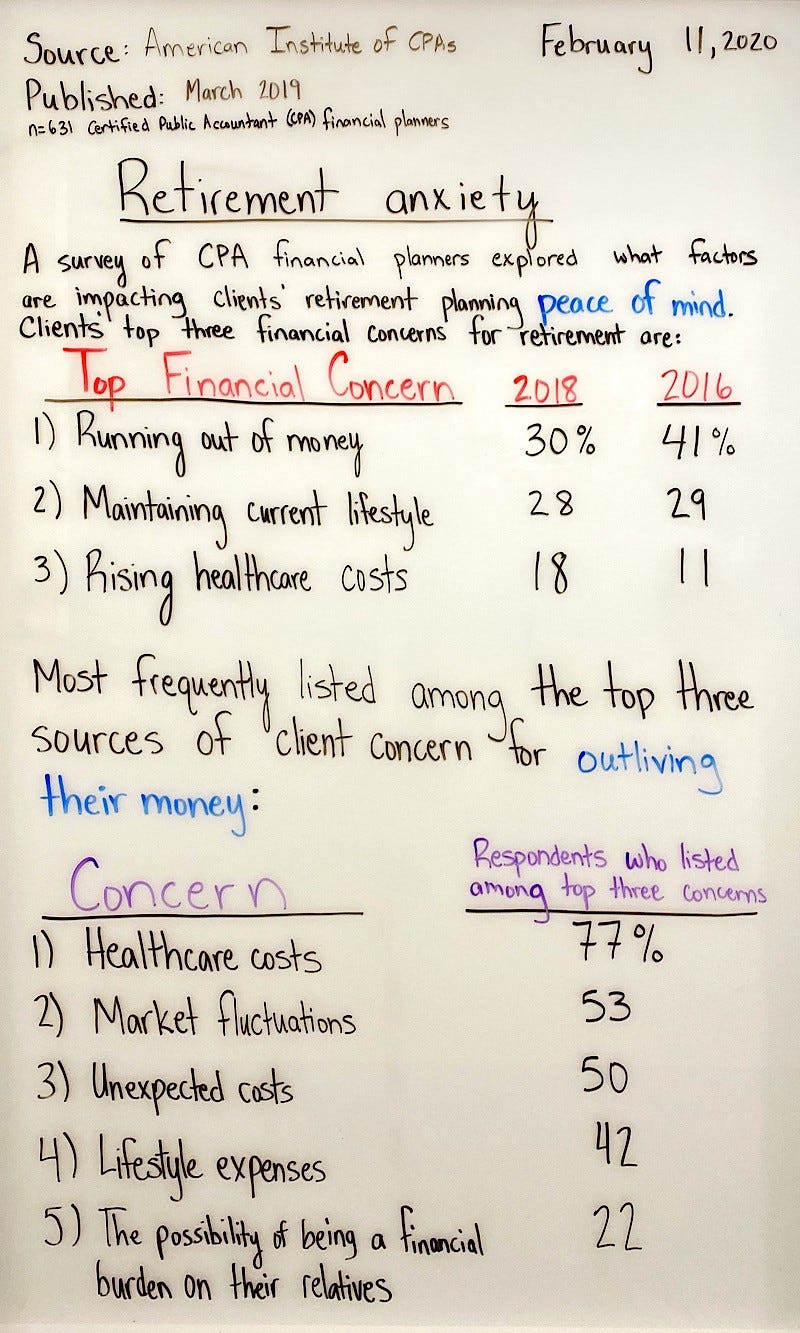 Source: American Institute of CPAs February 11, 2020
Published: March 2019
n=631 Certified Public Accountant (CPA) financial planners
Retirement anxiety
A survey of CPA financial planners explored what factors
are impacting clients' retirement planning peace of mind.
Clients' top three financial concerns for retirement are:
Top Financial Concern 2018 2016
1) Running out of money 30% 41%
2) Maintaining current lifestyle 28 29
3) Rising healthcare costs 18 11
Most frequently listed among the top three
sources of client concern for outliving
their money:
Respondents who listed
Concern among top three concerns
1) Healthcare costs 77%
2) Market fluctuations 53
3) Unexpected costs 50
4) Lifestyle expenses 42
5) The possibility of being a financial 22
burden on their relatives